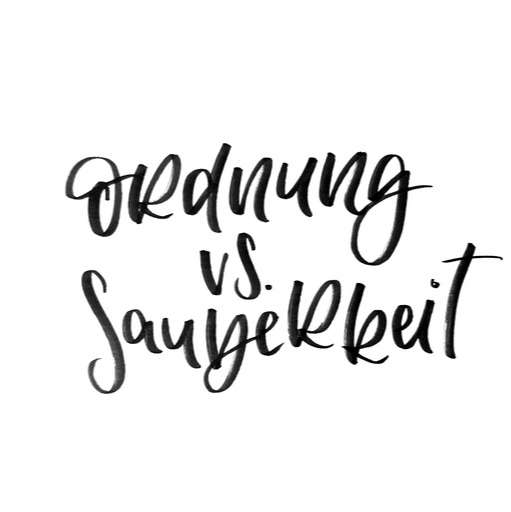 Ordnung
vs.
Sauberkeit